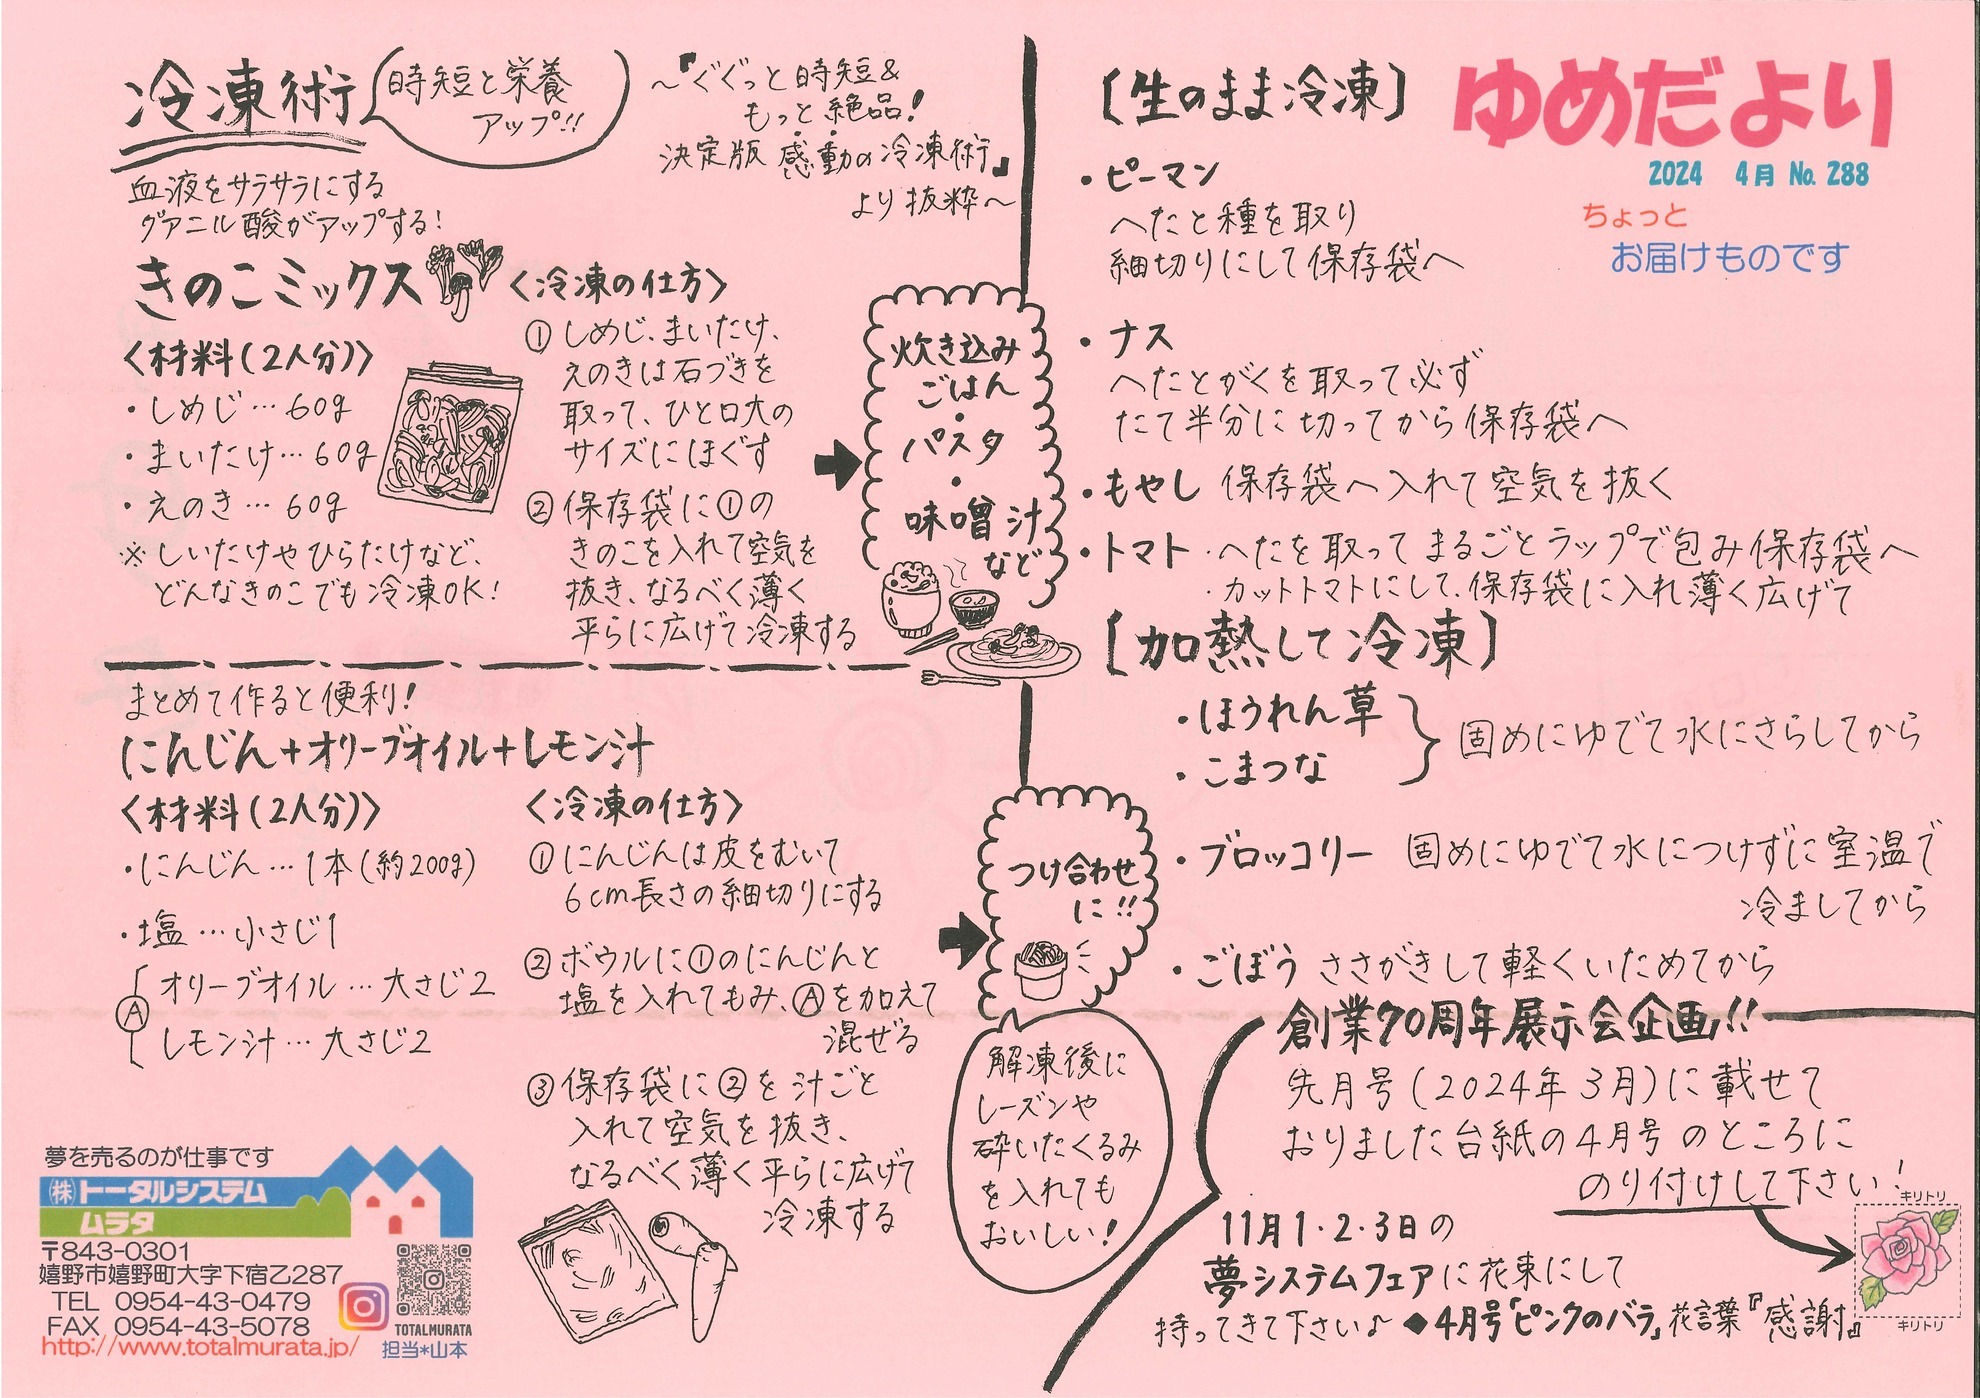 ゆめだより
2024 4月 No. 288
ちょっと
お届けものです
冷凍術
時短と栄養
アップ!!
～『ぐぐっと時短&
もっと絶品!
決定版 感動の冷凍術』
より抜粋～
血液をサラサラにする
グアニル酸がアップする!
きのこミックス
〈材料(2人分)〉
・しめじ…60g
・まいたけ…60g
・えのき…60g
※しいたけやひらたけなど、
どんなきのこでも冷凍OK!
〈冷凍の仕方〉
①しめじ、まいたけ、
えのきは石づきを
取って、ひと口大の
サイズにほぐす
②保存袋に①の
きのこを入れて空気を
抜き、なるべく薄く
平らに広げて冷凍する
炊き込み
ごはん
・
パスタ
・
味噌汁
など
まとめて作ると便利!
にんじん+オリーブオイル+レモン汁
〈材料(2人分)〉
・にんじん…1本(約200g)
・塩…小さじ1
Ⓐ
オリーブオイル…大さじ2
レモン汁…大さじ2
〈冷凍の仕方〉
①にんじんは皮をむいて
6cm長さの細切りにする
②ボウルに①のにんじんと
塩を入れてもみ、Ⓐを加えて
混ぜる
③保存袋に②を汁ごと
入れて空気を抜き、
なるべく薄く平らに広げて
冷凍する
つけ合わせ
に!!
解凍後に
レーズンや
砕いたくるみ
を入れても
おいしい!
[生のまま冷凍]
・ピーマン
へたと種を取り
細切りにして保存袋へ
・ナス
へたとがくを取って必ず
たて半分に切ってから保存袋へ
・もやし 保存袋へ入れて空気を抜く
・トマト ・へたを取ってまるごとラップで包み保存袋へ
・カットトマトにして、保存袋に入れ薄く広げて
[加熱して冷凍]
・ほうれん草
・こまつな
固めにゆでて水にさらしてから
・ブロッコリー 固めにゆでて水につけずに室温で
冷ましてから
・ごぼう ささがきして軽くいためてから
創業70周年展示会企画!!
先月号(2024年3月)に載せて
おりました台紙の4月号のところに
のり付けして下さい!
キリトリ
11月1・2・3日の
夢システムフェアに花束にして
持ってきて下さい♪ ◆4月号「ピンクのバラ」花言葉『感謝』
キリトリ
夢を売るのが仕事です
㈱トータルシステム
ムラタ
〒843-0301
嬉野市嬉野町大字下宿乙287
TEL 0954-43-0479
FAX 0954-43-5078
http://www.totalmurata.jp/
TOTALMURATA
担当*山本